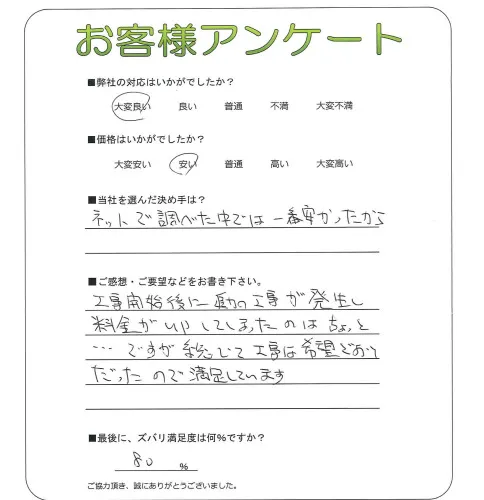 お客様アンケート
■弊社の対応はいかがでしたか？
大変良い 良い 普通 不満 大変不満
■価格はいかがでしたか？
大変安い 安い 普通 高い 大変高い
■当社を選んだ決め手は？
ネットで調べた中では一番安かったから
■ご感想・ご要望などをお書き下さい。
工事開始後に別の工事が発生し
料金がupしてしまったのはちょっと
…ですが総じて工事は希望どおり
だったので満足しています
■最後に、ズバリ満足度は何％ですか？
80 ％
ご協力頂き、誠にありがとうございました。